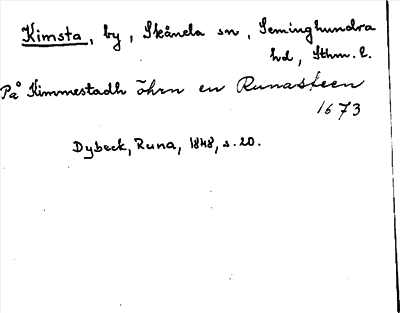 Kimsta, by, Skånela sn, Seminghundra
hd, Sthm. l.
På Kimmestadh öhrn en Runasteen
1673
Dybeck, Runa, 1848, s. 20.